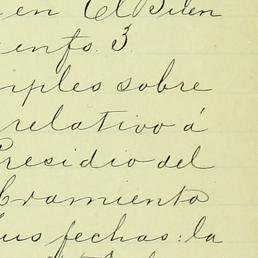 en El Buen
ento. 3.
mples sobre
relativo á
Presidio del
bramiento
sus fechas: la